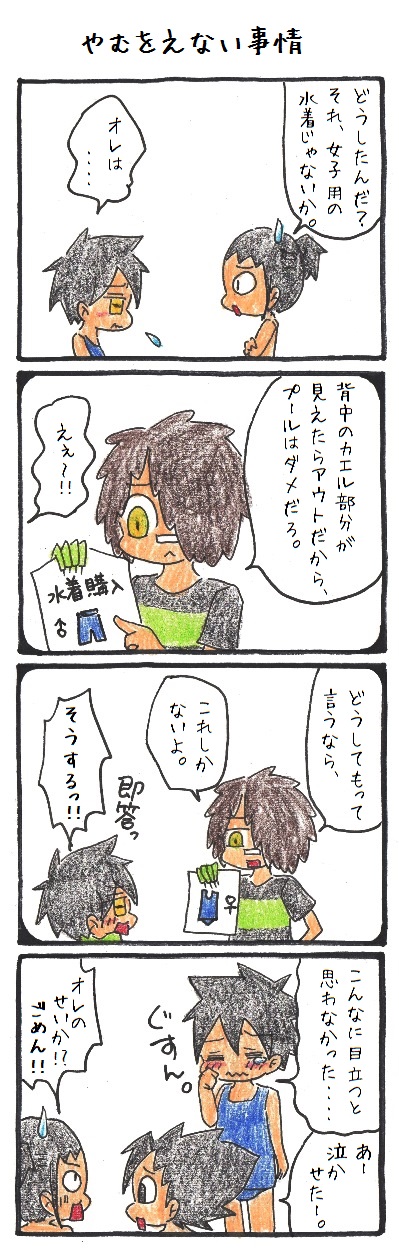 やむをえない事情
どうしたんだ?
それ、女子用の
水着じゃないか。
オレは
‥‥
背中のカエル部分が
見えたらアウトだから、
プールはダメだろ。
えぇ〜!!
水着購入
♂
どうしてもって
言うなら、
これしか
ないよ。
♀
即答っ
そうするっ!!
こんなに目立つと
思わなかった‥‥
ぐすん。
あー
泣か
せたー。
オレの
せいか!?
ごめん!!